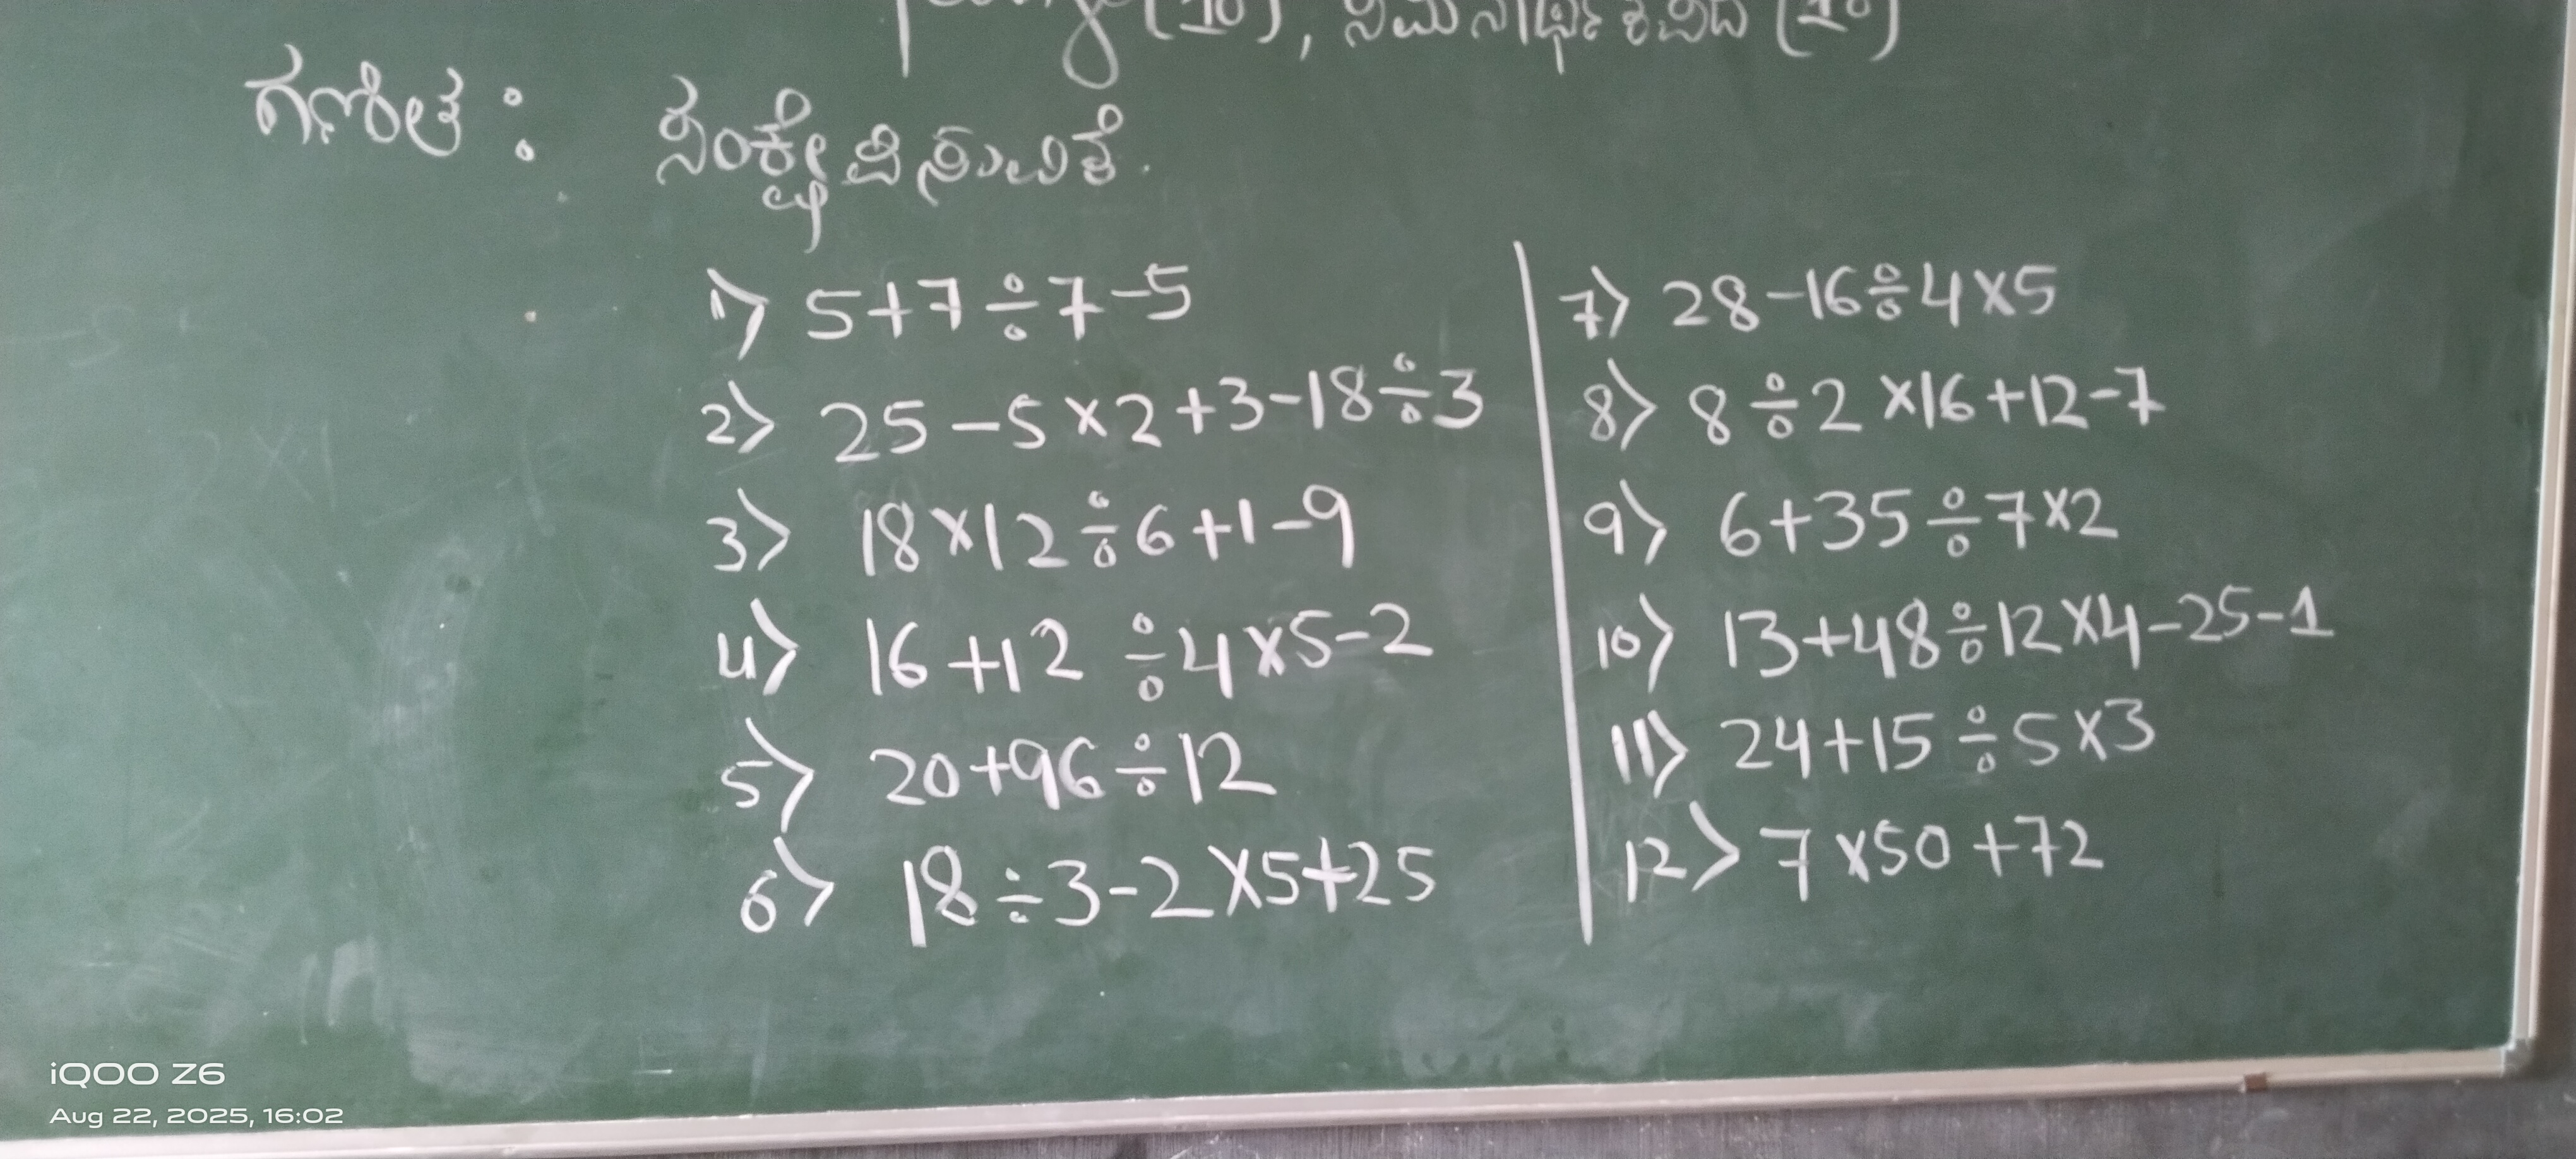 (10), (10)
ಗಣಿತ : ಸಂಕ್ಷೇಪಿಸುವಿಕೆ.
1) 5+7÷7-5
2) 25-5×2+3-18÷3
3) 18×12÷6+1-9
4) 16+12÷4×5-2
5) 20+96÷12
6) 18÷3-2×5+25
7) 28-16÷4×5
8) 8÷2×16+12-7
9) 6+35÷7×2
10) 13+48÷12×4-25-1
11) 24+15÷5×3
12) 7×50+72
iQOO Z6
Aug 22, 2025, 16:02